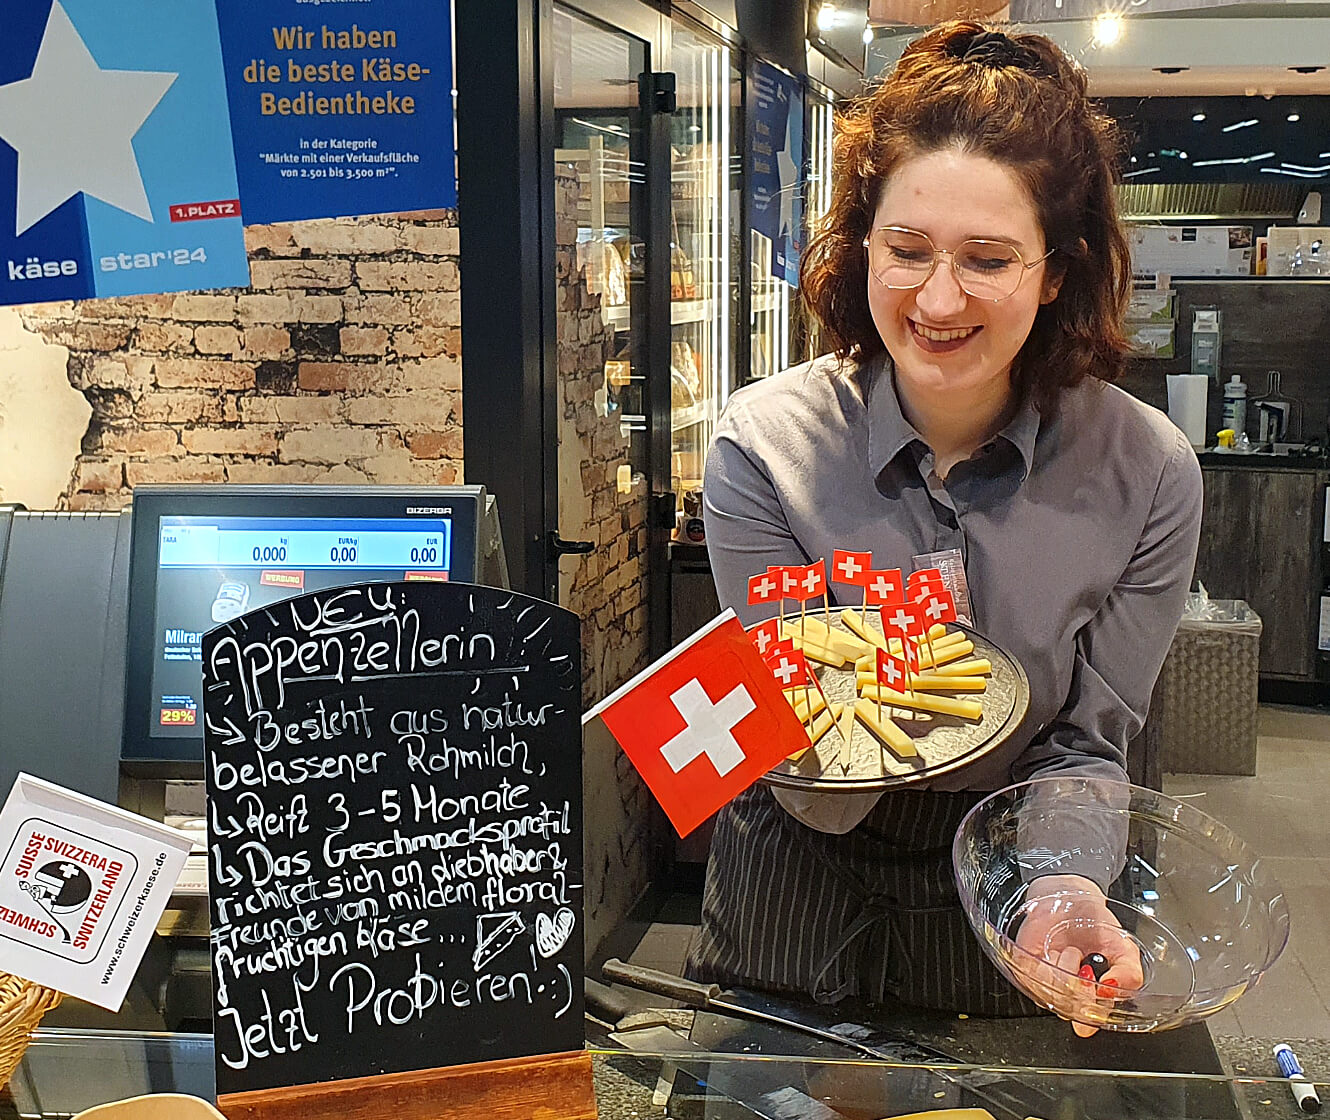 Wir haben
die beste Käse-
Bedientheke
in der Kategorie
"Märkte mit einer Verkaufsfläche
von 2.501 bis 3.500 m²".
1.PLATZ
käse star'24
BIZERBA
TARA
kg
EUR/kg
EUR
0,000
0,00
0,00
WERBUNG
29%
NEU:
Appenzellerin
↳ Besteht aus natur-
belassener Rohmilch,
↳ Reift 3-5 Monate
↳ Das Geschmacksprofil
richtet sich an Liebhaber &
Freunde von mildem floral-
fruchtigen Käse...
Jetzt Probieren! :)
SUISSE
SVIZZERA
SWITZERLAND
SCHWEIZ
www.schweizerkaese.de